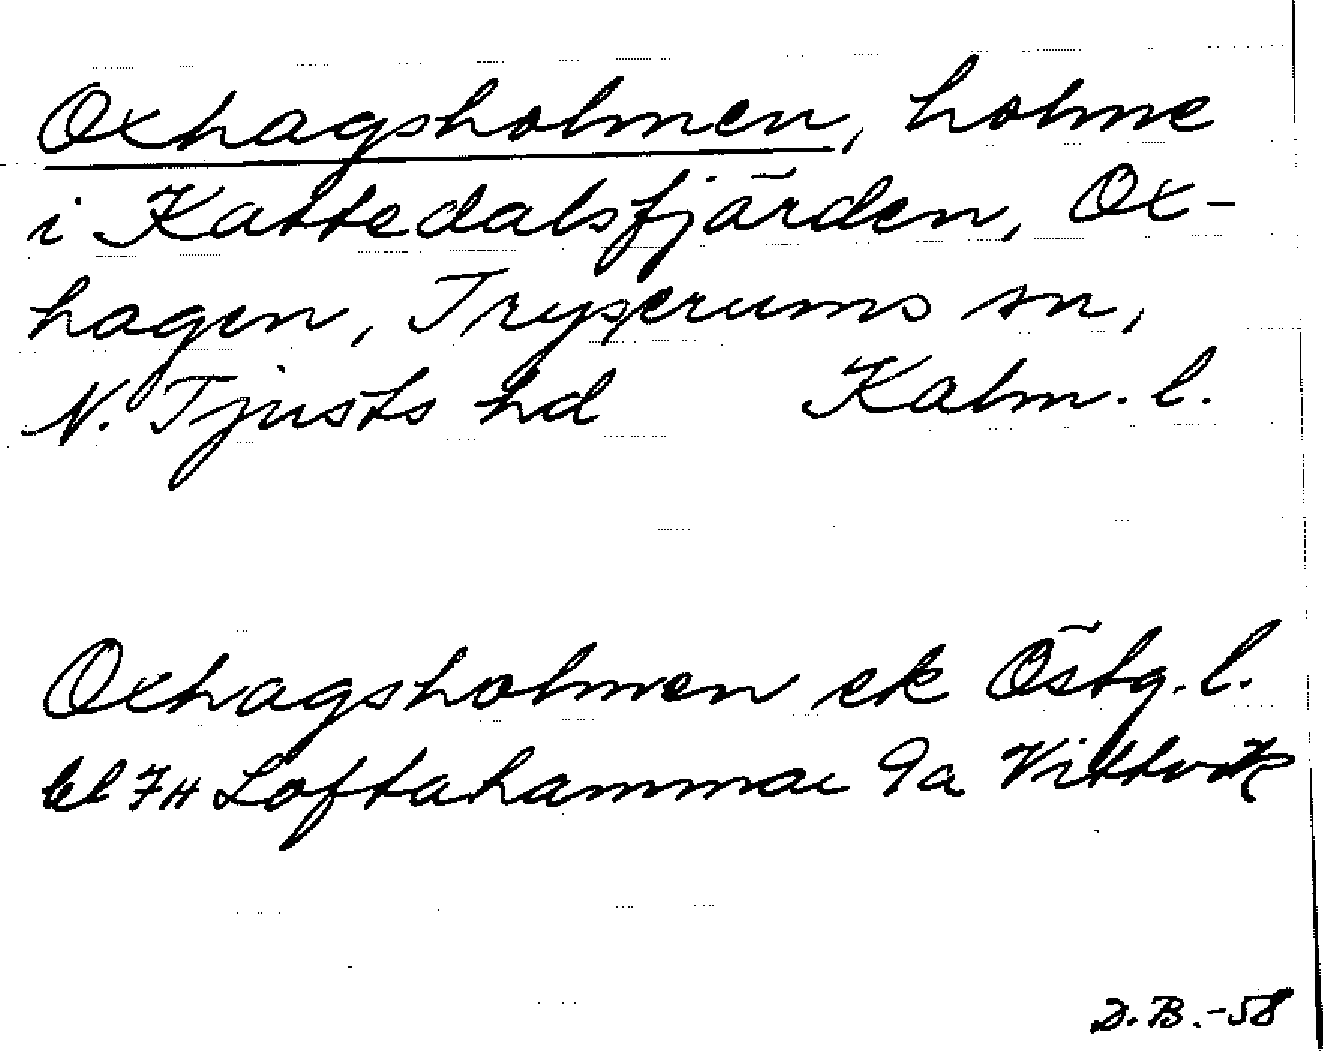 Oxhagsholmen, holme
i Kattedalsfjärden, Ox-
hagen, Tryserums sn,
N. Tjusts hd Kalm. l.
Oxhagsholmen ek Östg. l.
bl 7H Loftahammar 9a Vittvik
D.B.-58